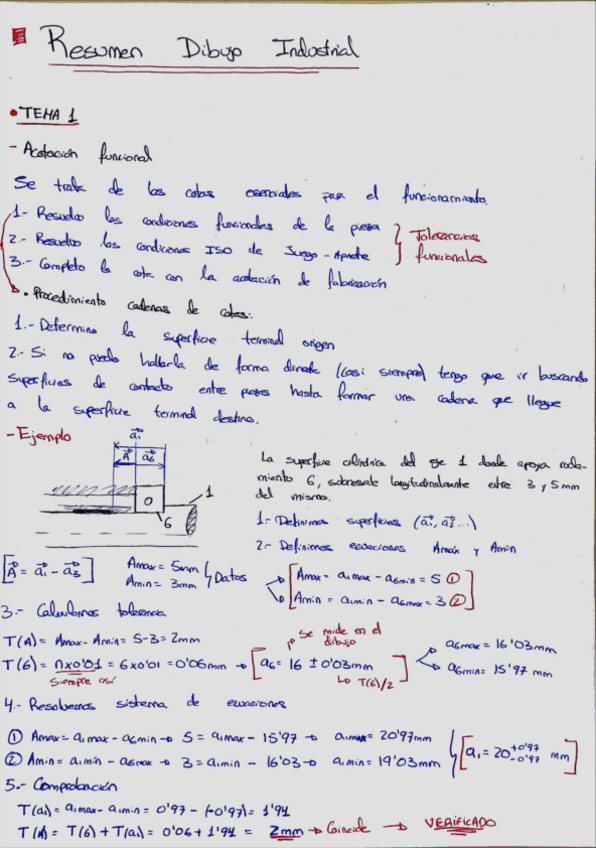 Resumen Dibujo Industrial
• TEMA 1
- Acotación funcional
Se trata de las cotas esenciales para el funcionamiento.
1.- Resuelvo las condiciones funcionales de la pieza
2.- Resuelvo las condiciones ISO de Juego-Apriete
3.- Completo la cota con la acotación de fabricación
Tolerancias
funcionales
• Procedimiento cadenas de cotas:
1.- Determino la superficie terminal origen
2.- Si no puedo hallarla de forma directa (casi siempre) tengo que ir buscando
superficies de contacto entre piezas hasta formar una cadena que llegue
a la superficie terminal destino.
- Ejemplo
a₁
A a₆
1
6
La superficie cilíndrica del eje 1 donde apoya roda-
miento 6, sobresale longitudinalmente entre 3 y 5mm
del mismo.
1.- Definimos superficies (a₁, a₂...)
2.- Definimos ecuaciones Amáx y Amin
[A = a₁ - a₃]
Amax = 5mm
Amin = 3mm
Datos
Amax = a₁max - a₆min = 5 ①
Amin = a₁min - a₆max = 3 ②
3.- Calculamos tolerancia
T(A) = Amax - Amin = 5-3 = 2mm
T(6) = nx0'01 = 6x0'01 = 0'06mm → [a₆ = 16 ± 0'03mm]
siempre así
Se mide en el
dibujo
T(6)/2
a₆max = 16'03mm
a₆min = 15'97 mm
4.- Resolvemos sistema de ecuaciones
① Amax = a₁max - a₆min → 5 = a₁max - 15'97 → a₁max = 20'97mm
② Amin = a₁min - a₆max → 3 = a₁min - 16'03 → a₁min = 19'03mm
[a₁ = 20 +0'97 -0'97 mm]
5.- Comprobación
T(a₁) = a₁max - a₁min = 0'97 - (-0'97) = 1'94
T(A) = T(6) + T(a₁) = 0'06 + 1'94 = 2mm → Coincide → VERIFICADO